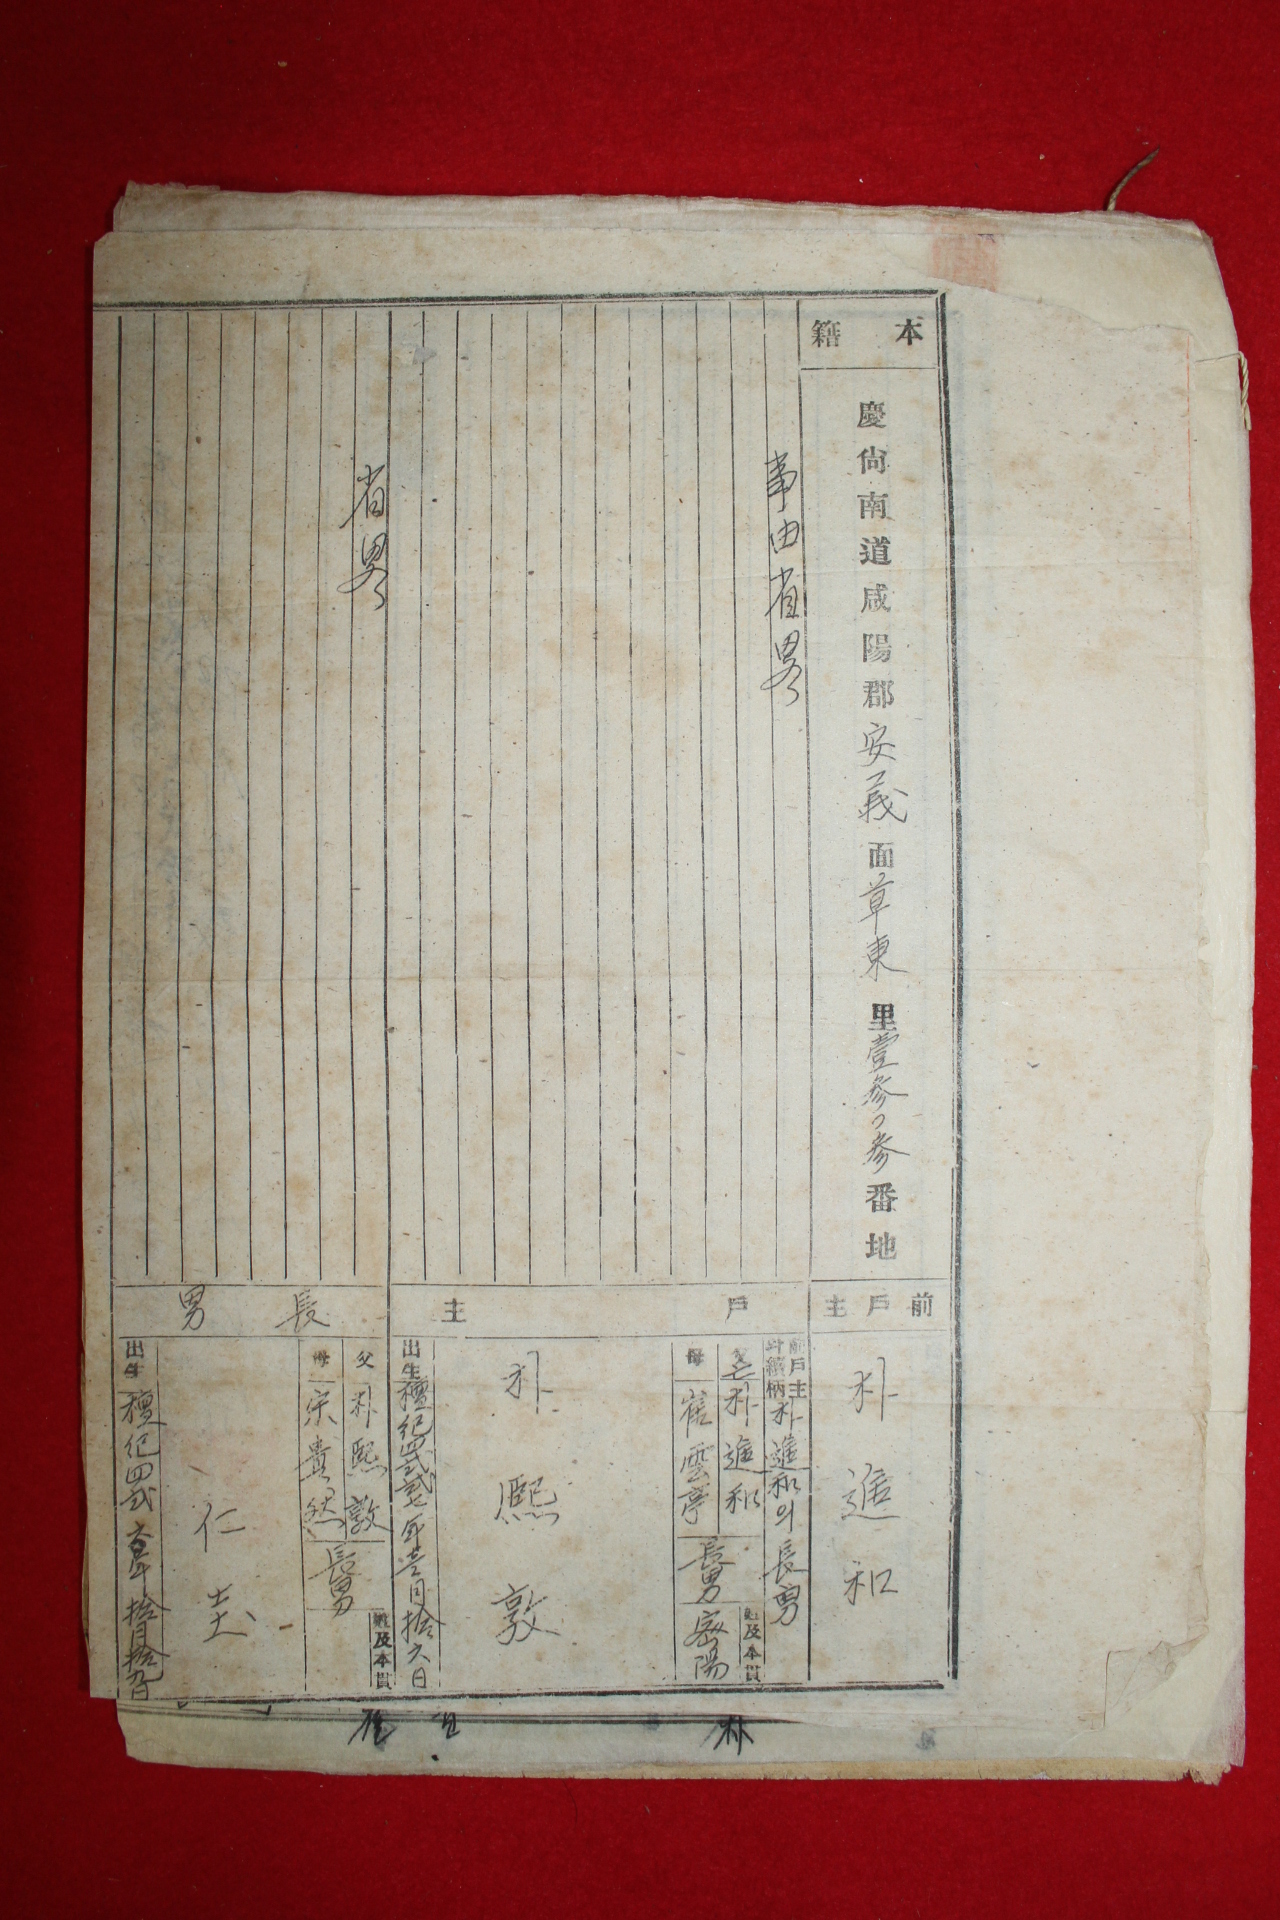 本籍
慶尙南道咸陽郡安義面草東里壹参ノ参番地
前戶主
朴進和
事由省畧
戶主
前戶主와續柄
朴進和의長男
父
亡朴進和
母
崔雲亭
長男
姓及本貫
密陽
朴熙敦
出生
檀紀四貳
年壹月拾六日
省畧
長男
父
朴熙敦
母
宗貴然
長男
姓及本貫
仁圭
出生
檀紀四貳
年拾月拾
朴